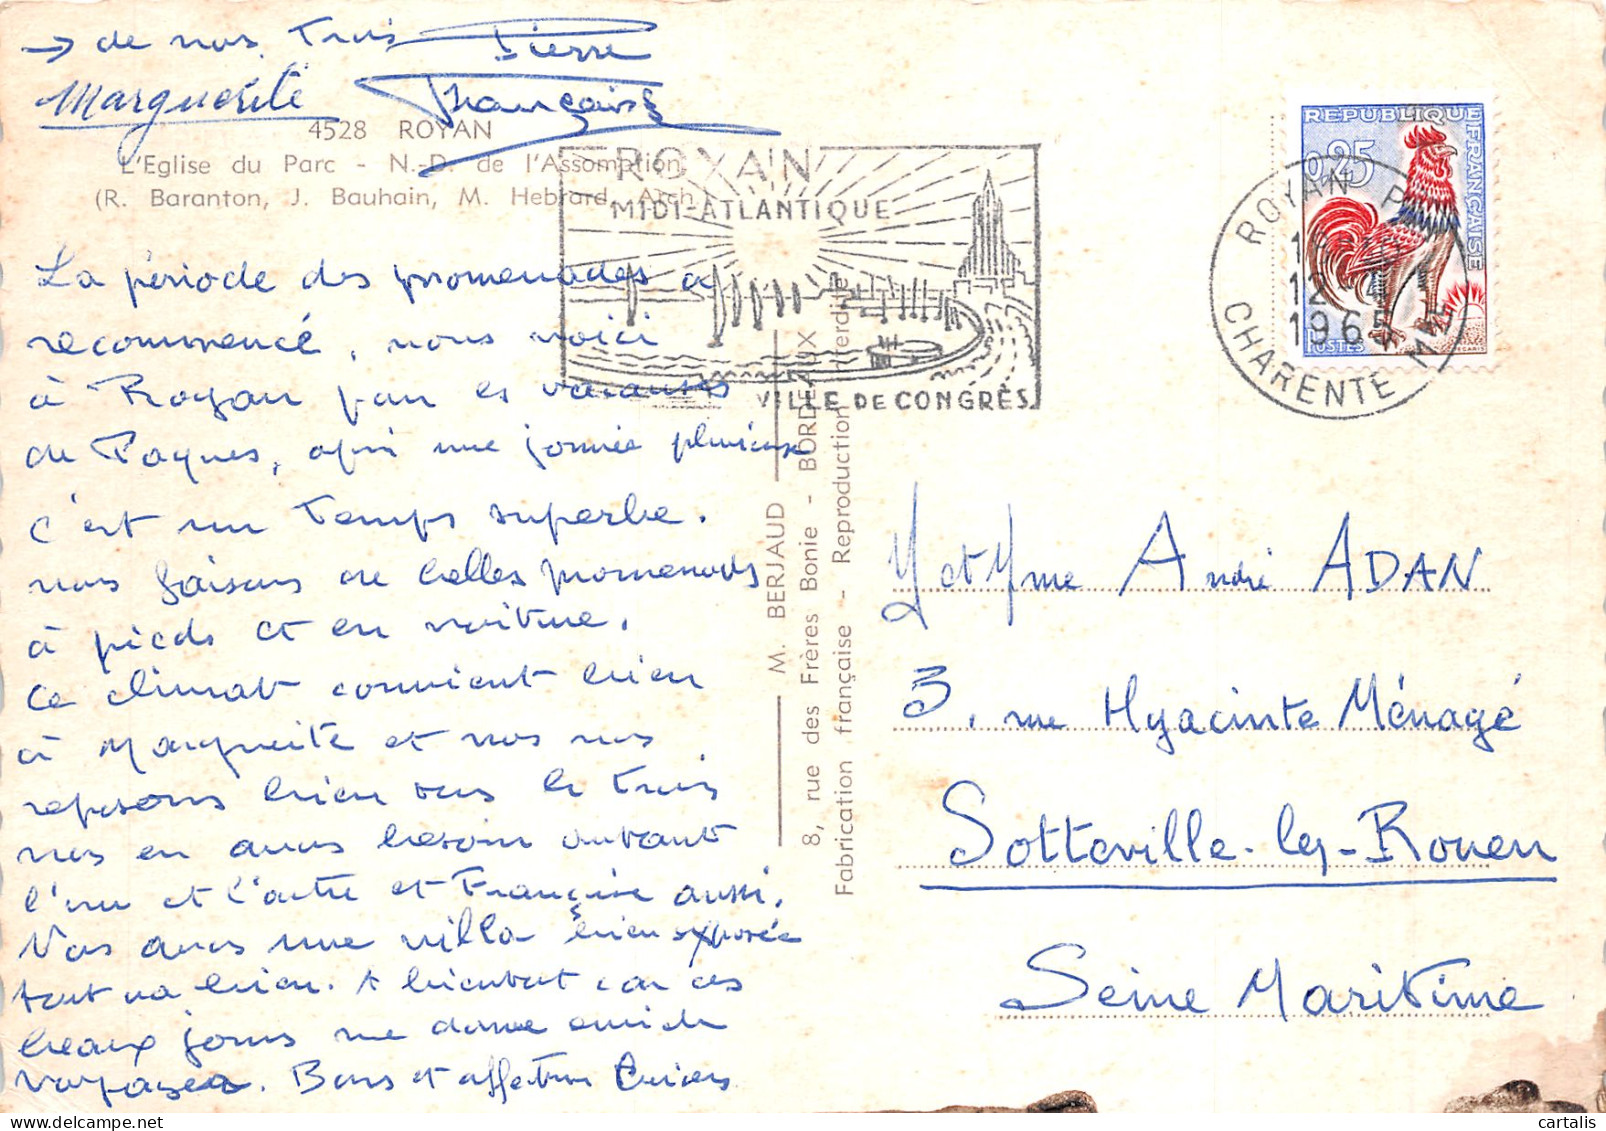 → de nos trois Pierre
Marguerite Françoise
4528 ROYAN
L'Eglise du Parc - N.-D. de l'Assomption
(R. Baranton, J. Bauhain, M. Hebrard, Arch.
La période des promenades a
recommencé, nous voici
à Royan pour les vacances
de Paques, après une journée pluvieuse
c'est un temps superbe.
nous faisons de belles promenades
à pieds et en voiture.
Ce climat convient bien
à Marguerite et nous nous
reposons bien tous les trois
nous en avons besoin autant
l'un et l'autre et Françoise aussi.
Nous avons une villa bien exposée
tout va bien. A bientôt car ces
beaux jours me donne envie de
voyager. Bons et affectueux baisers
ROYAN
MIDI-ATLANTIQUE
VILLE DE CONGRÈS
REPUBLIQUE FRANÇAISE
0,25
POSTES
ROYAN P.
12 - 4
1965
CHARENTE MME
M. BERJAUD
8, rue des Frères Bonie - BORDEAUX
Fabrication française - Reproduction interdite
M et Mme André ADAN
3, rue Hyacinte Ménagé
Sotteville-les-Rouen
Seine Maritime
cartalis